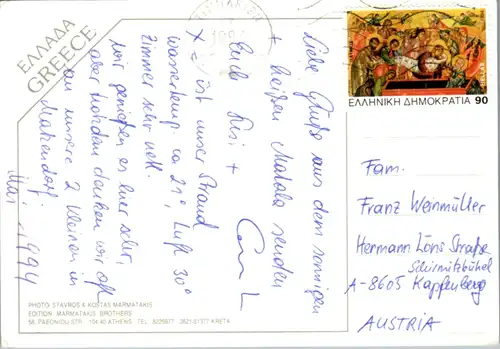 ΕΛΛΑΔΑ
GREECE
Liebe Grüße aus dem sonnigen
+ heißen Matala senden
Eure Susi +
X = ist unser Strand
Wassertemp. ca 21°, Luft 30°
Zimmer sehr nett.
Wir genießen es hier sehr,
aber trotzdem denken wir oft
an unsere 2 Kleinen in
Matzendorf.
Mai 1994
PHOTO STAVROS & KOSTAS MARMATAKIS
EDITION MARMATAKIS BROTHERS
58, PAEONIOU STR. 104 40 ATHENS TEL. 8226977 0821-61377 KRETA
ΕΛΛΗΝΙΚΗ ΔΗΜΟΚΡΑΤΙΑ 90
HELLAS
Fam.
Franz Weinmüller
Hermann Löns Straße
Schirmitzbühel
A-8605 Kapfenberg
AUSTRIA